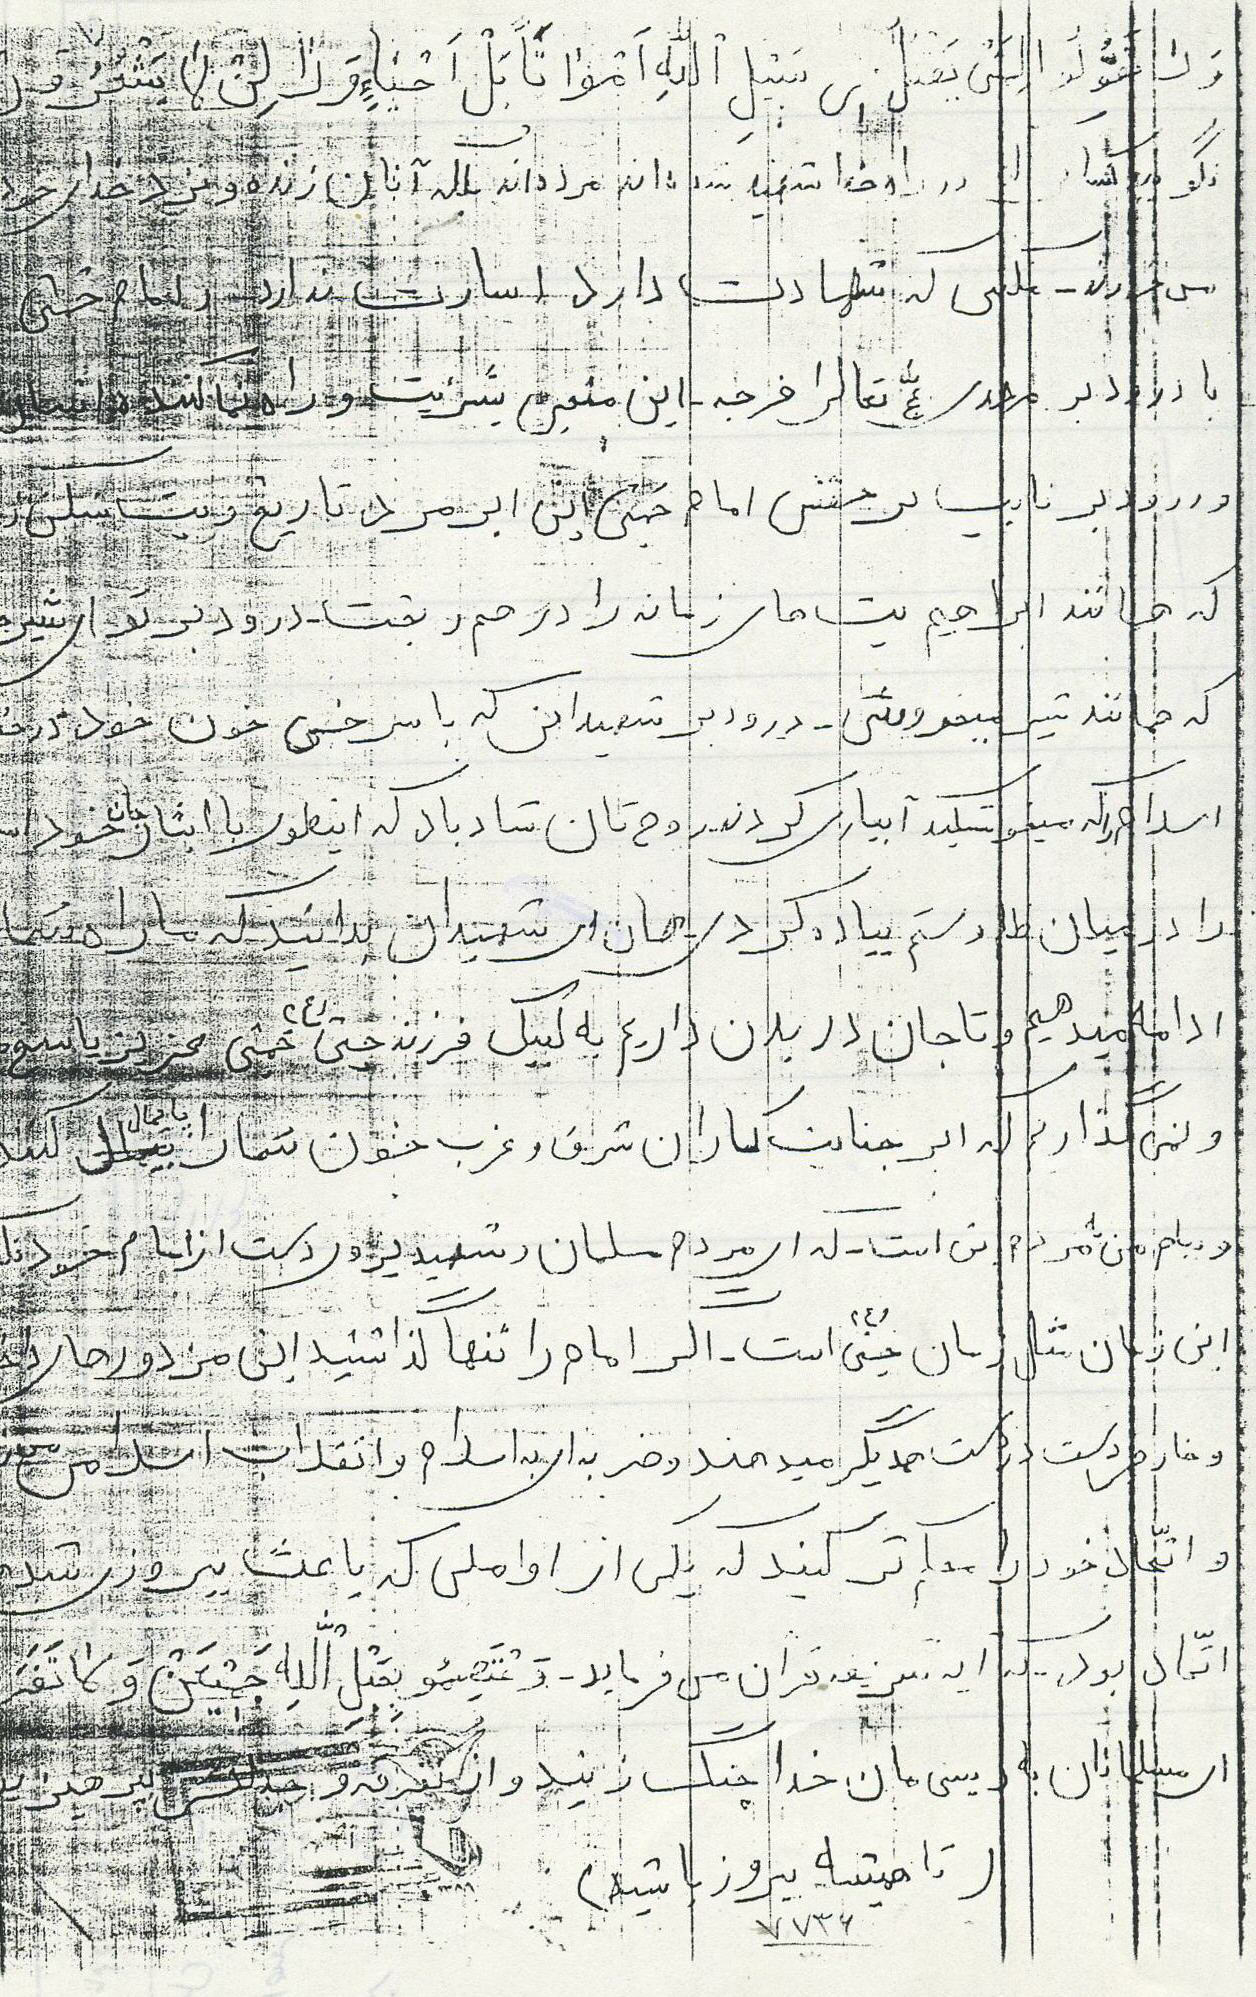 وَلا تَقُولُو لِمَنْ یَقْتَلُ فی سَبیلِ اَللّهِ اَمْواتاً بَلْ اَحْیاءٍ وَلا لِنْ لا یَشْعُرُون
نگویید کسان در راه خدا شهید شده‌اند مرده‌اند بلکه آنان زنده و نزد خدای خود
می‌خورند - ملتی که شهادت دارد اسارت ندارد - امام خمینی
با درود بر مهدی عج تعالی فرجه - این منجی بشریت و راه نما کننده انسان
و درود بر نایب بر حقش امام خمینی این ابر مرد تاریخ و بت شکن
که همانند ابراهیم بت های زمانه را در هم ریخت - درود بر تو ای شیر
که همانند شیر میخروشی - درود بر شهیدانی که با سرخی خون خود درخت
اسلام را که میخوشکید آبیاری کردند روح تان شاد باد که اینطور با ایثار جان خود
را در میان ظلم و ستم پیاده کردی - هان ای شهیدان بدانید که ما راه شما
ادامه میدهیم و تا جان در بدن داریم به لبیک فرزند حسین (ع) خمینی عزیز پاسخ
و نمی گذاریم که ابر جنایت کاران شرق و غرب خون شما را پایمال کنند
و پیام من به مردم این است - که ای مردم مسلمان و شهید پرور دست از امام خود
این زمان مثل زمان حسین (ع) است - اگر امام را تنها گذاشتید این مزدورهای
و خارجی دست در دست همدیگر میدهند و ضربه ای به اسلام و انقلاب اسلامی
و اتّحاد خود را محکم تر کنید که یکی از اواملی که باعث پیروزی شد
اتّحاد بود - که آیه شریفه قران می فرماید - وَ عْتَصِمُو بِحَبْلِ اللّهِ جَمیعَنْ وَ لا تَفَرَ
ای مسلمانان به ریسمان خدا چنگ زنید و از تفرقه و پرهیز
(تا همیشه پیروز باشید)
۷۷۳۶